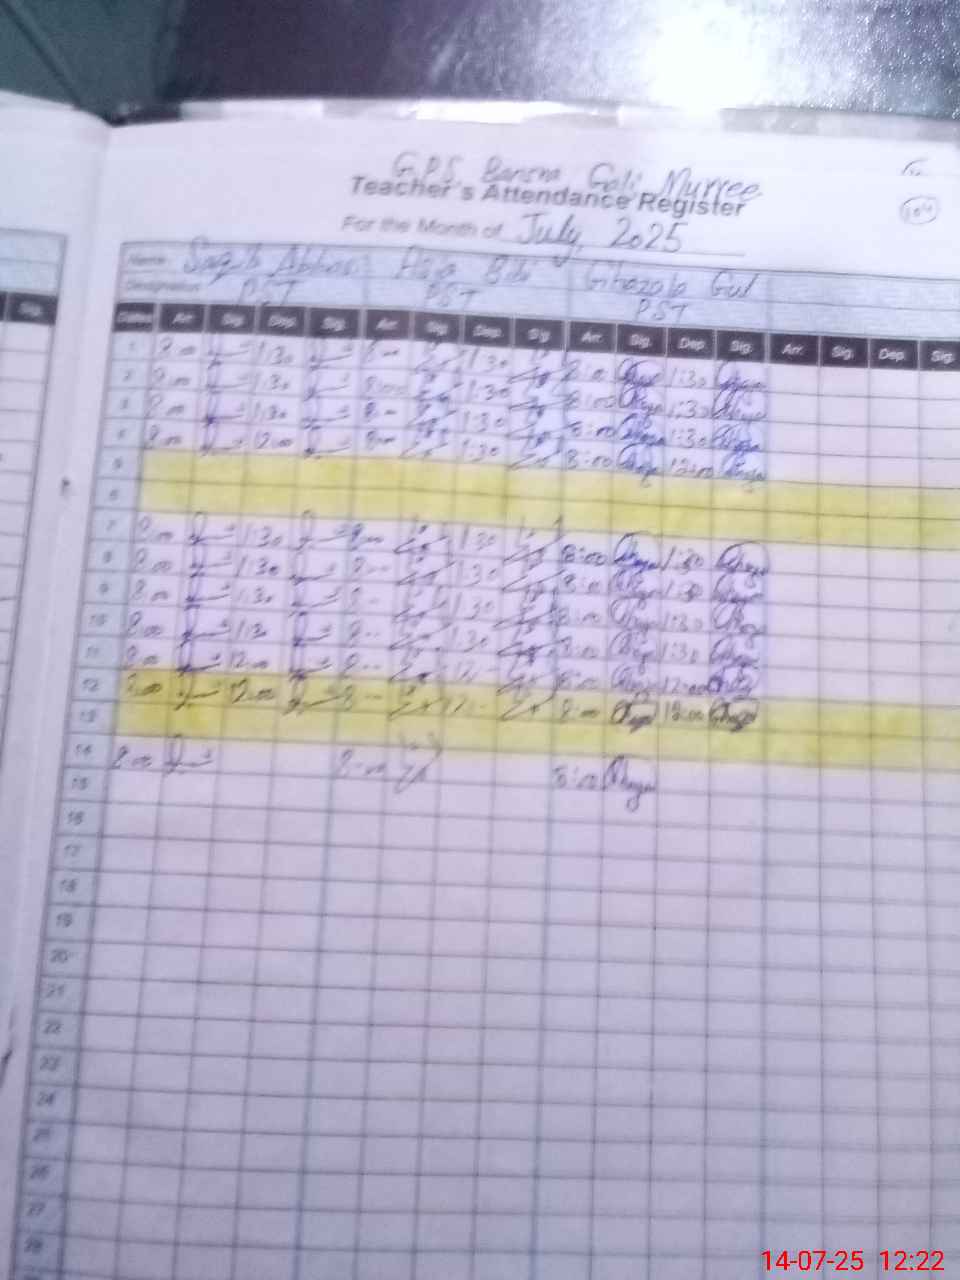 G.P.S Bansra Gali Murree
Teacher's Attendance Register
104
For the Month of July 2025
Name Saqib Abbas Asia Bibi Ghazala Gul
Designation PST PST PST
Sig.
Dates Arr. Sig. Dep. Sig. Arr. Sig. Dep. Sig. Arr. Sig. Dep. Sig. Arr. Sig. Dep. Sig.
1 8:00 1:30 8:00 1:30 8:00 1:30
2 8:00 1:30 8:00 1:30 8:00 1:30
3 8:00 1:30 8:00 1:30 8:00 1:30
4 8:00 12:00 8:00 1:30 8:00 12:00
5
6
7 8:00 1:30 8:00 1:30 8:00 1:30
8 8:00 1:30 8:00 1:30 8:00 1:30
9 8:00 1:30 8:00 1:30 8:00 1:30
10 8:00 1:30 8:00 1:30 8:00 1:30
11 8:00 12:00 8:00 12:00 8:00 12:00
12 8:00 12:00 8:00 12:00 8:00 12:00
13
14 8:00 8:00 8:00
15
16
17
18
19
20
21
22
23
24
25
26
27
28
14-07-25 12:22